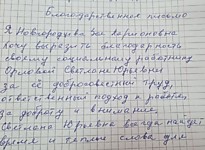 Благодарственное письмо
Я Новгородцева Зоя Ларионовна
хочу выразить благодарность
своему социальному работнику
Орловой Светлане Юрьевне
За её добросовестный труд,
ответственный подход к работе,
За доброту и внимание.
Светлана Юрьевна всегда находит
время и тёплые слова для